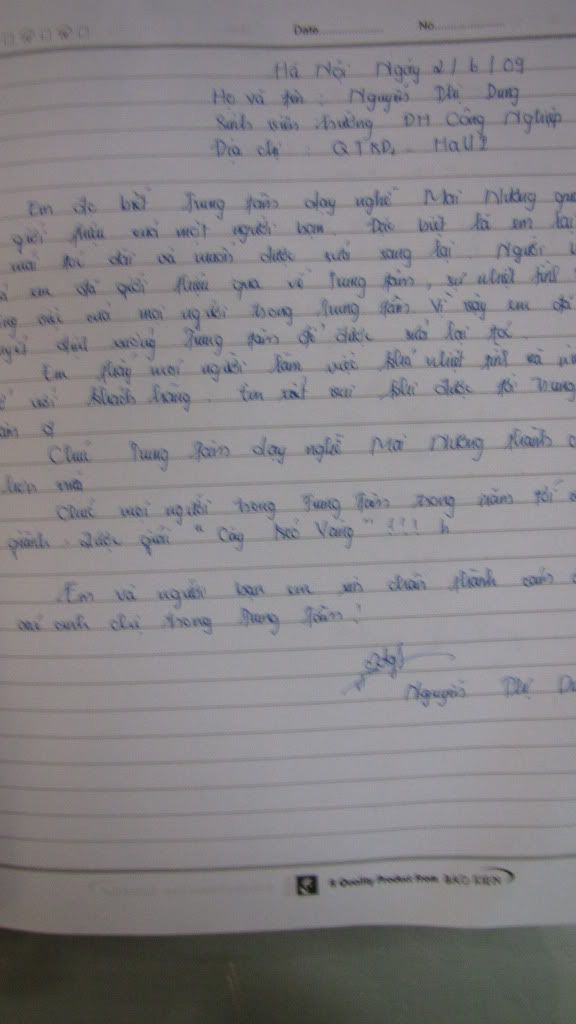 Date............... No...............
Hà Nội Ngày 2/6/09
Họ và tên : Nguyễn Thị Dung
Sinh viên trường ĐH Công Nghiệp
Địa chỉ : QTKD2 - HaUI
Em đc biết Trung tâm dạy nghề Mai Hương
giới thiệu của một người bạn. Đặc biệt là em
mái tóc dài và muốn được sửa sang lại. Người
em đã giới thiệu qua về Trung tâm, sự nhiệt tình
của mọi người trong Trung tâm. Vì vậy em đã
định xuống Trung tâm để được sửa lại tóc.
Em thấy mọi người làm việc khá nhiệt tình và
với khách hàng. Em rất vui khi được tới Trung
ạ
Chúc Trung tâm dạy nghề Mai Hương thành
hơn nữa
Chúc mọi người trong Trung tâm trong năm tới
giành được giải " Cây kéo Vàng " !!!
Em và người bạn em xin chân thành cảm
các anh chị trong Trung tâm!
Nguyễn Thị
A Quality Product From BAO KIEN